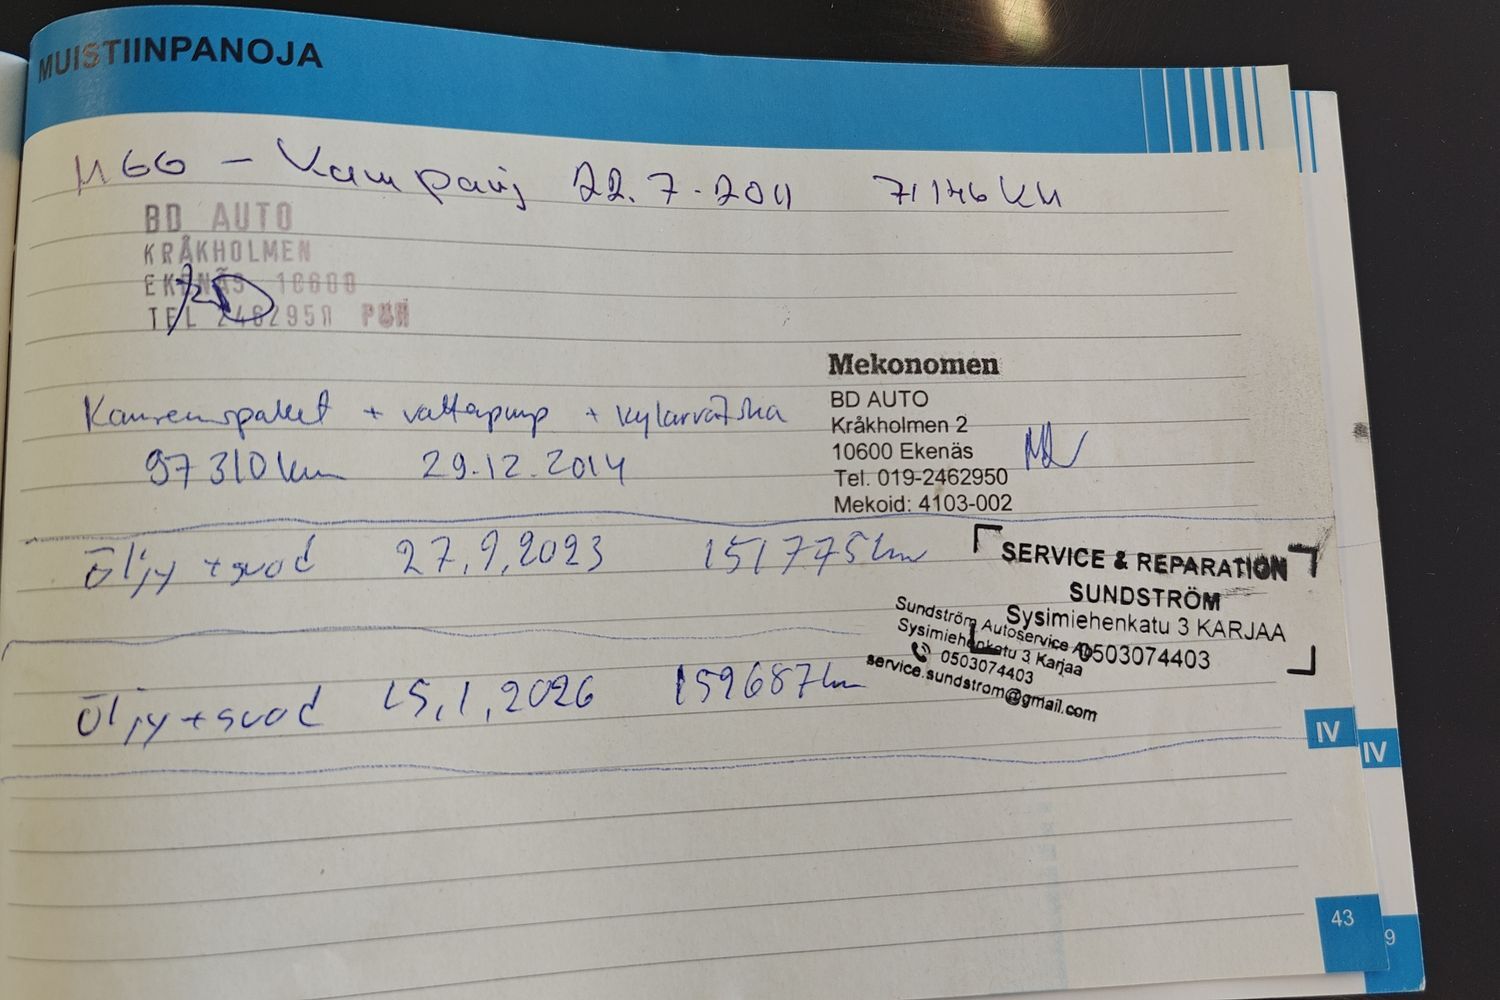 MUISTIINPANOJA
M66 - Kampanj 22.7.2011 71146 KM
BD AUTO
KRÅKHOLMEN
EKENÄS 10600
TEL 2462950 PUH
Mekonomen
BD AUTO
Kråkholmen 2
10600 Ekenäs
Tel. 019-2462950
Mekoid: 4103-002
Kamremspaket + vattapump + kylarvätska
97310 km 29.12.2014
öljy + suod 27.9.2023 151775 km
SERVICE & REPARATION
SUNDSTRÖM
Sysimiehenkatu 3 KARJAA
0503074403
Sundström Autoservice
Sysimiehenkatu 3 Karjaa
0503074403
service.sundstrom@gmail.com
öljy + suod 15.1.2026 159687 km
IV
IV
43
9